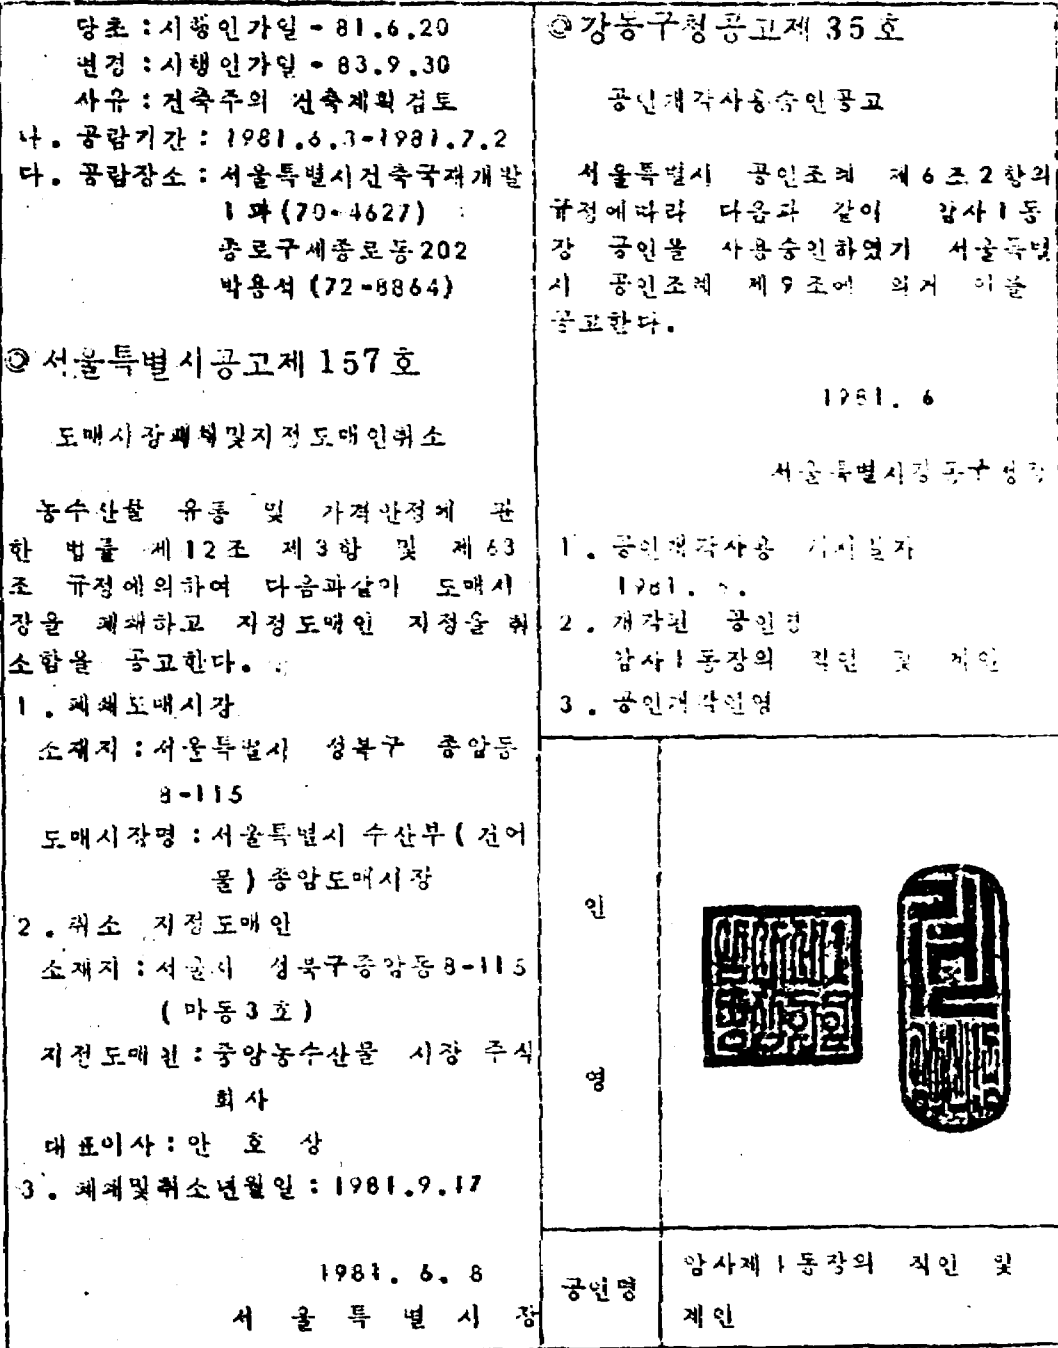 당초 : 시행인가일 - 81.6.20
변경 : 시행인가일 - 83.9.30
사유 : 건축주의 건축계획검토
나. 공람기간 : 1981.6.3-1981.7.2
다. 공람장소 : 서울특별시건축국재개발
1과 (70-4627)
종로구세종로동202
박용석 (72-8864)
◎ 서울특별시공고제 157 호
도매시장폐쇄및지정도매인취소
농수산물 유통 및 가격안정에 관
한 법률 제12조 제3항 및 제63
조 규정에의하여 다음과같이 도매시
장을 폐쇄하고 지정도매인 지정을 취
소함을 공고한다.
1. 폐쇄도매시장
소재지 : 서울특별시 성북구 종암동
8-115
도매시장명 : 서울특별시 수산부 ( 건어
물 ) 종암도매시장
2. 취소 지정도매인
소재지 : 서울시 성북구종암동8-115
( 마동3호 )
지정도매인 : 중앙농수산물 시장 주식
회사
대표이사 : 안 호 상
3. 폐쇄및취소년월일 : 1981.9.17
1981. 6. 8
서 울 특 별 시 장
◎ 강동구청공고제 35 호
공인개각사용승인공고
서울특별시 공인조례 제6조2항의
규정에따라 다음과 같이 암사1동
장 공인을 사용승인하였기 서울특별
시 공인조례 제9조에 의거 이를
공고한다.
1981. 6
서울특별시강동구청장
1. 공인개각사용 개시일자
1981.
2. 개각된 공인명
암사1동장의 직인 및 계인
3. 공인개각인영
인
영
공인명
암사제1동장의 직인 및
계인